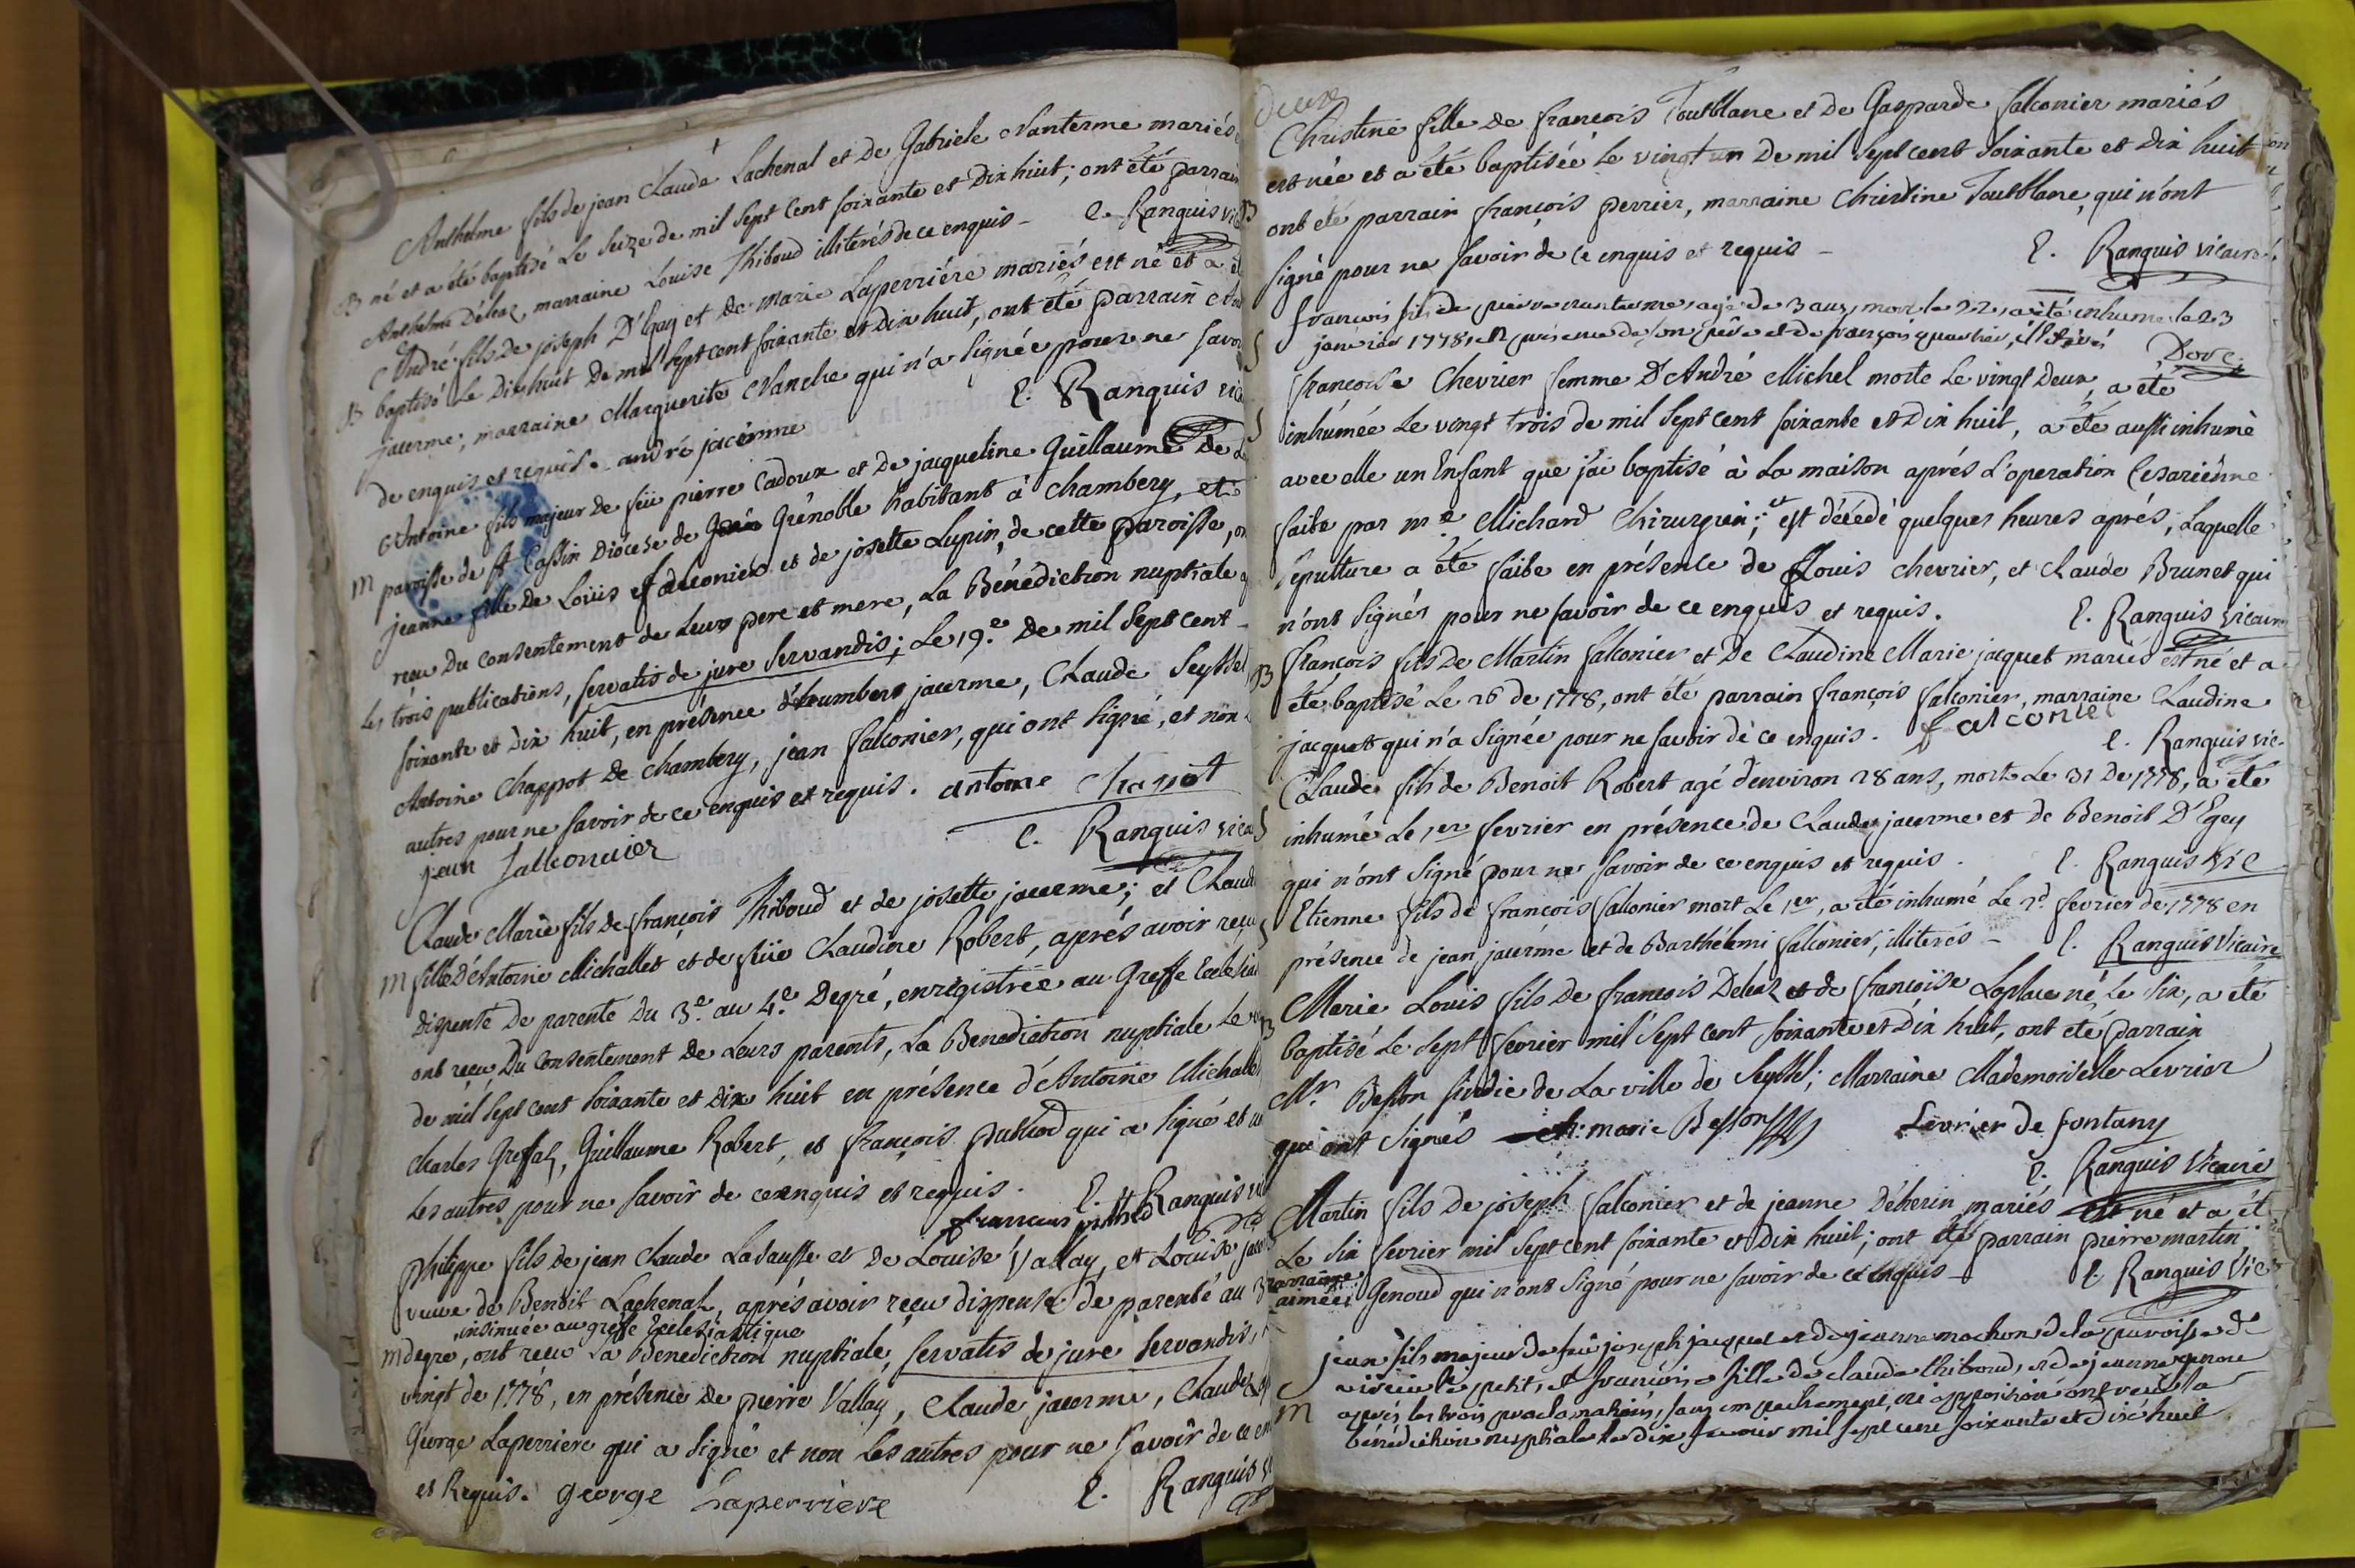 Anthelme fils de jean Claude Lachenal et de Gabriele Nanterme mariés
B né et a été baptisé Le Seize de mil Sept Cent soixante et Dix huit; ont été parrain
Anthelme Déléaz, marraine Louise Thiboud illiterés de ce enquis - C. Ranguis vic
André fils de joseph D'Egay et de marie Laperriére mariés est né et a été
B baptisé Le Dix huit De mil Sept cent soixante et dix huit, ont été parrain André
jacerme, marraine Marguerite Manche qui n'a Signée pour ne Savoir
de enquis et requise. andré jacerme C. Ranguis vica
Antoine fils majeur de feu pierre Cadoux et de jacqueline Guillaume De La
M paroisse de St Cassin Diocese de Grenoble habitant à Chambery, et
jeanne fille De Loüis falconier et de josette Lupin, de cette paroisse, on
reçu Du Consentement de Leurs pere et mere, La Bénédiction nuptiale
Les trois publications, servatis de jure Servandis; Le 19.e De mil Sept cent
soixante et Dix huit, en présence d'humbert jacerme, Claude Seyssel
Antoine Chappot De Chambery, jean falconier, qui ont Signé, et non
autres pour ne savoir de ce enquis et requis. antoine Chapot
jean falconnier C. Ranguis vica
Claude Marie fils De françois Thiboud et de josette jacerme; et Claud
M fille d'Antoine Michallet et de feüe Claudine Robert, aprés avoir reçu
dispense De parenté Du 3.e au 4.e Degré, enregistrée au Greffe Ecclesias
ont reçu Du Consentement De Leurs parents, La Benediction nuptiale Le
de mil Sept cent Soixante et Dix huit en présence d'Antoine Michallet
charles Greffaz, Guillaume Robert, et françois puthod qui a signé et
Les autres pour ne savoir de ce enquis et requis. C. Ranguis vi
francois puthod
philippe fils de jean Claude Ladausse et De Louise Vallay, et Louise jace
veuve de Benoit Lachenal, aprés avoir reçu dispense De parenté au 3
,insinuée au greffe Ecclesiastique
M degre, ont reçu La Benediction nuptiale, servatis de jure Servandis,
vingt de 1778, en présence De pierre Vallay, Claude jacerme, Claude
George Laperriere qui a Signé et non Les autres pour ne Savoir de ce en
et Requis. george Laperriere C. Ranguis v
deux
Christine fille de françois Toutblanc et de Gasparde falconier mariés
B est née et a été baptisée Le vingt un De mil Sept cent Soixante et Dix huit
ont été parrain françois perrier, marraine Christine Toutblanc, qui n'ont
Signé pour ne Savoir de ce enquis et requis - C. Ranguis vicaire
françois fils de pierre nanterme, agé de 3 ans, mort le 22, a été inhumé le 23
S janvier 1778, en presence de son père et de françois illiterés Dove
françoise Chevrier femme D'André Michel morte Le vingt Deux, a été
S inhumée Le vingt trois de mil Sept cent soixante et Dix huit, a été aussi inhumé
avec elle un Enfant que j'ai baptisé à La maison aprés L'operation Cesarienne
faite par m.e Michard Chirurgien; et est décedé quelques heures aprés, Laquelle
Sépulture a été faite en présence de Louis Chevrier, et Claude Brunet qui
n'ont Signés pour ne savoir de ce enquis et requis. C. Ranguis vicaire
B françois fils De Martin falconier et De Claudine Marie jacquet mariés est né et a
été baptisé Le 26 de 1778, ont été parrain françois falconier, marraine Claudine
jacquet qui n'a Signée pour ne savoir de ce enquis. falconier C. Ranguis vic.
Claude fils de Benoit Robert agé d'environ 28 ans, mort Le 31 De 1778, a été
S inhumé Le 1er fevrier en présence de Claude jacerme et de Benoit D'Egey
qui n'ont Signé pour ne Savoir de ce enquis et requis. C. Ranguis vic
S Etienne fils de françois falconier mort Le 1er, a été inhumé Le 2d fevrier de 1778 en
présence de jean jacerme et de Barthélemi falconier, illiterés - C. Ranguis Vicaire
Marie Louis fils De francois Deleaz et de françoise Laplace né Le six, a été
B baptisé Le Sept fevrier mil Sept cent Soixante et Dix huit, ont été parrain
Mr. Besson sindic de La ville de Seyssel; Marraine Mademoiselle Levrier
qui ont Signés marie Besson Levrier de fontany
C. Ranguis Vicaire
Martin fils De joseph falconier et de jeanne Déherin mariés est né et a ét
Le Six fevrier mil Sept cent soixante et Dix huit; ont été parrain pierre martin
marraine aimée Genoud qui n'ont Signé pour ne savoir de ce enquis - C. Ranguis Vic
jean fils majeur de feü joseph jacquet et de jeanne machon de la paroisse de
le petit, et françoise fille de claude thiboud, et de jeanne
M après les trois proclamations, sans empechement, ni opposition ont reçu la
bénédiction nuptiale le dix fevrier mil sept cent soixante et dix huit